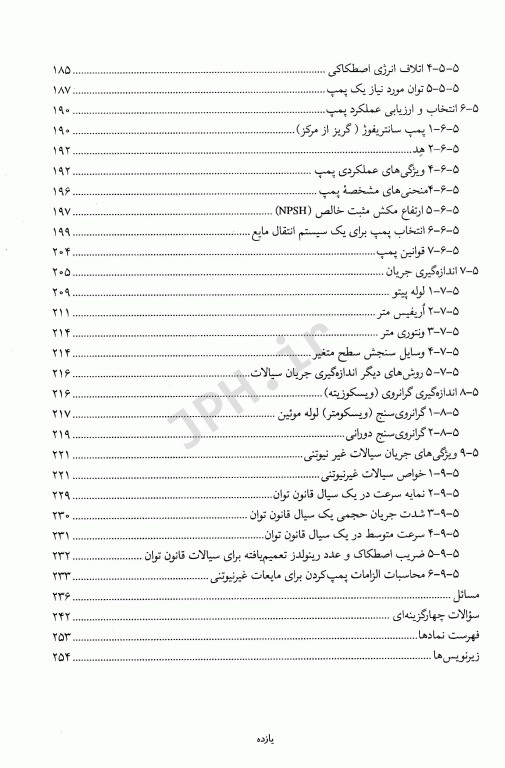 ۵-۵-۴ اتلاف انرژی اصطکاکی ........ ۱۸۵
۵-۵-۵ توان مورد نیاز یک پمپ ........ ۱۸۷
۵-۶ انتخاب و ارزیابی عملکرد پمپ ........ ۱۹۰
۵-۶-۱ پمپ سانتریفوژ ( گریز از مرکز) ........ ۱۹۰
۵-۶-۲ هد ........ ۱۹۲
۵-۶-۴ ویژگی‌های عملکردی پمپ ........ ۱۹۲
۵-۶-۴منحنی‌های مشخصهٔ پمپ ........ ۱۹۶
۵-۶-۵ ارتفاع مکش مثبت خالص (NPSH) ........ ۱۹۷
۵-۶-۶ انتخاب پمپ برای یک سیستم انتقال مایع ........ ۱۹۹
۵-۶-۷ قوانین پمپ ........ ۲۰۴
۵-۷ اندازه‌گیری جریان ........ ۲۰۵
۵-۷-۱ لوله پیتو ........ ۲۰۹
۵-۷-۲ اُریفیس متر ........ ۲۱۱
۵-۷-۳ ونتوری متر ........ ۲۱۴
۵-۷-۴ وسایل سنجش سطح متغیر ........ ۲۱۴
۵-۷-۵ روش‌های دیگر اندازه‌گیری جریان سیالات ........ ۲۱۶
۵-۸ اندازه‌گیری گرانروی (ویسکوزیته) ........ ۲۱۶
۵-۸-۱ گرانروی‌سنج (ویسکومتر) لوله موئین ........ ۲۱۷
۵-۸-۲ گرانروی‌سنج دورانی ........ ۲۱۹
۵-۹ ویژگی‌های جریان سیالات غیر نیوتنی ........ ۲۲۱
۵-۹-۱ خواص سیالات غیرنیوتنی ........ ۲۲۱
۵-۹-۲ نمایه سرعت در یک سیال قانون توان ........ ۲۲۹
۵-۹-۳ شدت جریان حجمی یک سیال قانون توان ........ ۲۳۰
۵-۹-۴ سرعت متوسط در یک سیال قانون توان ........ ۲۳۱
۵-۹-۵ ضریب اصطکاک و عدد رینولدز تعمیم‌یافته برای سیالات قانون توان ........ ۲۳۲
۵-۹-۶ محاسبات الزامات پمپ‌کردن برای مایعات غیرنیوتنی ........ ۲۳۳
مسائل ........ ۲۳۶
سؤالات چهارگزینه‌ای ........ ۲۴۲
فهرست نمادها ........ ۲۵۳
زیرنویس‌ها ........ ۲۵۴
یازده
JPH.ir